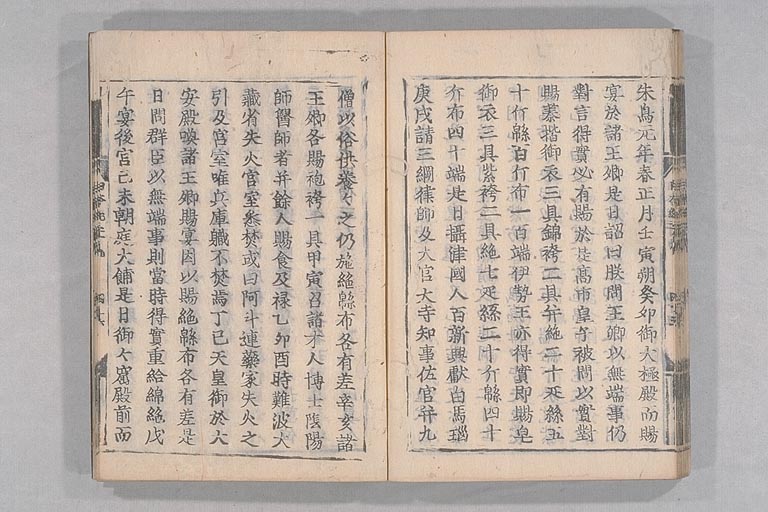 朱鳥元年春正月壬寅朔癸卯御大極殿而賜
宴於諸王卿是日詔曰朕問王卿以無端事仍
對言得實必有賜於是高市皇子被問以實對
賜蓁揩御衣三具錦袴二具并絁二十疋絲五
十斤緜百斤布一百端伊勢王亦得實即賜皂
御衣三具紫袴二具絁七疋絲二十斤緜四十
斤布四十端是日攝津國人百新興獻白馬瑙
庚戌請三綱律師及大官大寺知事佐官并九
僧以俗供養々之仍施絁緜布各有差辛亥諸
王卿各賜袍袴一具甲寅召諸才人博士陰陽
師醫師者并餘人賜食及禄乙卯酉時難波大
藏省失火宮室悉焚或曰阿斗連藥家失火之
引及宮室唯兵庫職不焚焉丁巳天皇御於大
安殿喚諸王卿賜宴因以賜絁緜布各有差是
日問群臣以無端事則當時得實重給綿絁戊
午宴後宮己未朝庭大餔是日御々窟殿前而